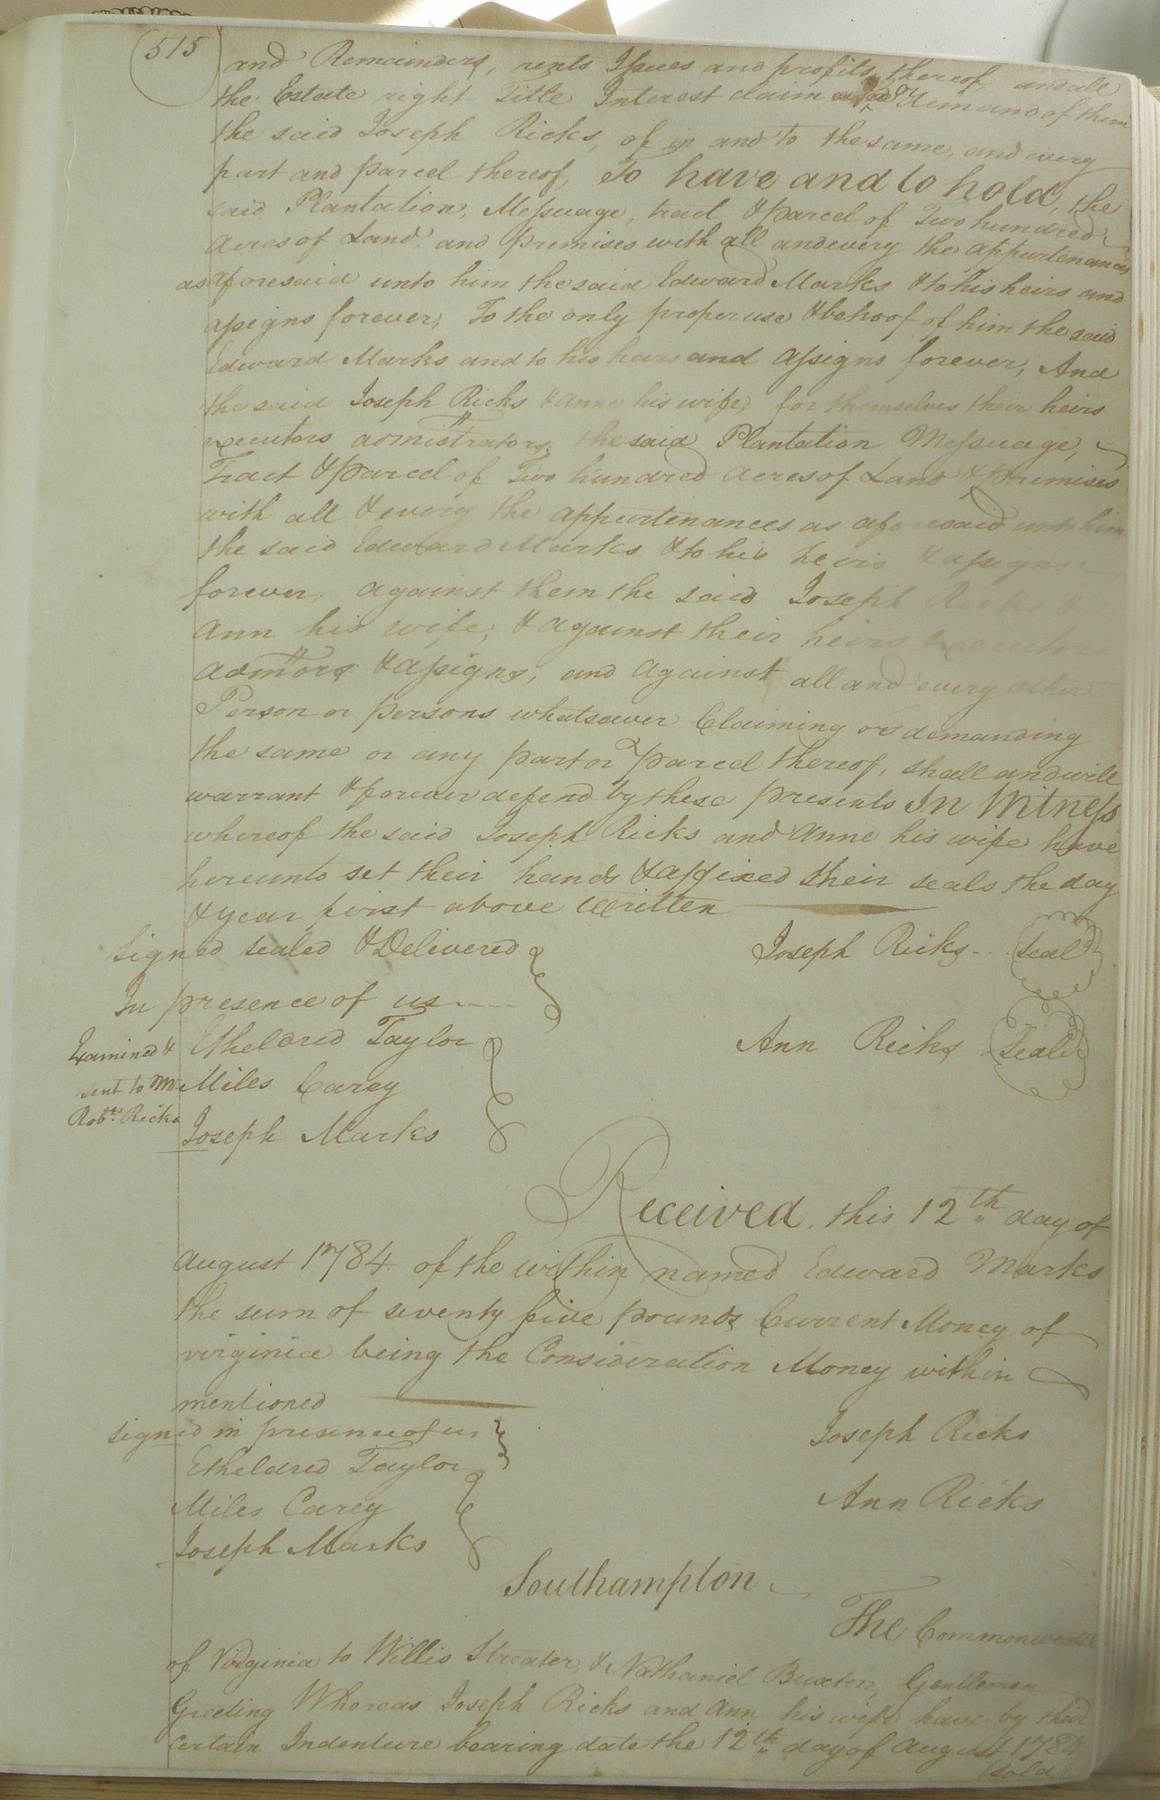 515
and Remainders, rents Issues and profits thereof, and all
the Estate right Title Interest claim and Demand of them
the said Joseph Ricks, of in and to the same, and every
part and parcel thereof, To have and to hold, the
said Plantation, Messuage, tract & parcel of Two hundred
Acres of Land, and premises with all and every the appurtenances
as aforesaid unto him the said Edward Marks & to his heirs and
assigns forever, To the only proper use & behoof of him the said
Edward Marks and to his heirs and assigns forever, And
the said Joseph Ricks & Anne his wife, for themselves their heirs
executors administrators, the said Plantation Messuage,
Tract & parcel of Two hundred Acres of Land & premises
with all & every the appurtenances as aforesaid unto him
the said Edward Marks & to his heirs & assigns
forever, against them the said Joseph Ricks &
Ann his wife, & against their heirs Executors
admtors & assigns, and against all and every other
Person or persons whatsoever Claiming or demanding
the same or any part or parcel thereof, shall and will
warrant & forever defend by these presents In Witness
whereof the said Joseph Ricks and Anne his wife have
hereunto set their hands & affixed their seals the day
& year first above written
Signed sealed & Delivered
In presence of us
Joseph Ricks Seal
Etheldred Taylor
Ann Ricks Seal
Miles Carey
Joseph Marks
Examined &
sent to Mr
Robt. Ricks
Received this 12th day of
August 1784 of the within named Edward Marks
the sum of seventy five pounds Current Money of
virginia being the Consideration Money within
mentioned
signed in presence of us
Joseph Ricks
Etheldred Taylor
Ann Ricks
Miles Carey
Joseph Marks
Southampton
The Commonwealth
of Virginia to Willis Streater, & Nathaniel Buxton, Gentlemen
Greeting Whereas Joseph Ricks and Ann his wife have by their
certain Indenture bearing date the 12th day of August 1784
(sold